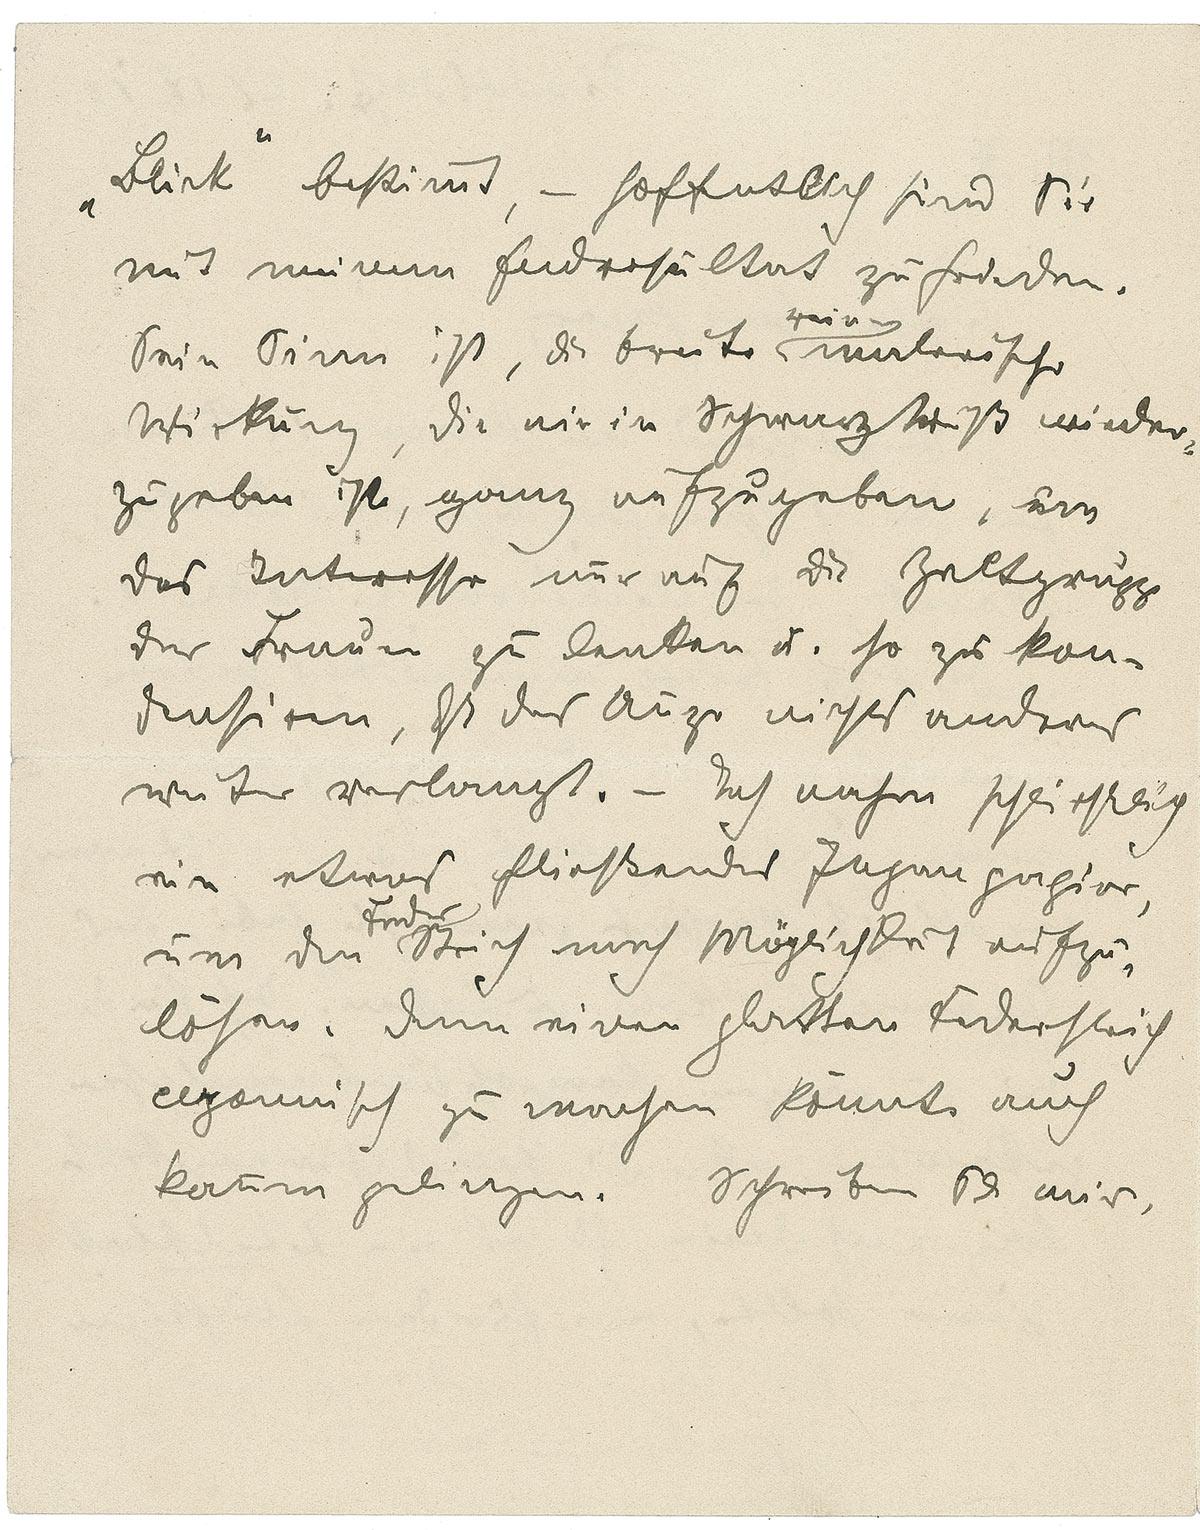 „Blick“ bestimt, – hoffentlich sind Sie
mit meinem Endresultat zufrieden.
Sein Sinn ist, die breite rein malerische
Wirkung, die nie in Schwarzweiß wieder-
zugeben ist, ganz aufzugeben, um
das Interesse nur auf die Zeltgruppe
der Frauen zu lenken u. so zu kon-
densiren, daß das Auge nichts anderes
weiter verlangt. – Ich nahm schließlich
ein etwas fließendes Japanpapier,
um den Federstrich nach Möglichkeit aufzu-
lösen. denn einen glatten Federstrich
cezannisch zu machen könnte auch
kaum gelingen. Schreiben Sie mir,